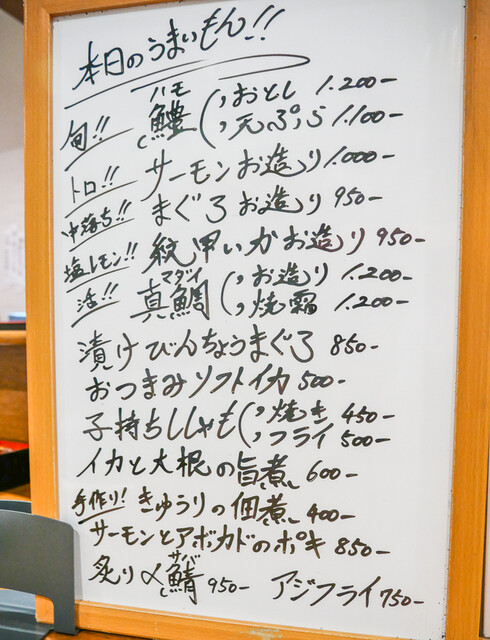 本日のうまいもん!!
旬!! 鱧 ハモ (・おとし 1.200-
・天ぷら 1.100-
トロ!! サーモンお造り 1.000-
中落ち!! まぐろお造り 950-
塩レモン!! 紋甲いかお造り 950-
活!! 真鯛 マダイ (・お造り 1.200-
・焼霜 1.200-
漬けびんちょうまぐろ 850-
おつまみソフトイカ 500-
子持ちししゃも (・焼き 450-
・フライ 500-
イカと大根の旨煮 600-
手作り! きゅうりの佃煮 400-
サーモンとアボカドのポキ 850-
炙り〆鯖 サバ 950- アジフライ 750-